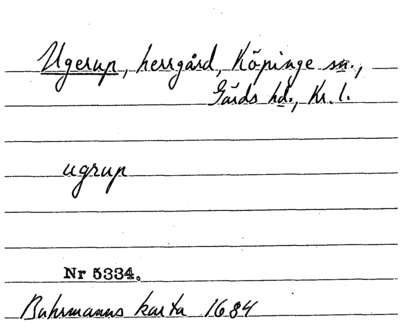 Ugerup, herrgård, Köpinge sn.,
Gärds hd., Kr. l.
ugrup
Nr 5334.
Buhrmanns karta 1684